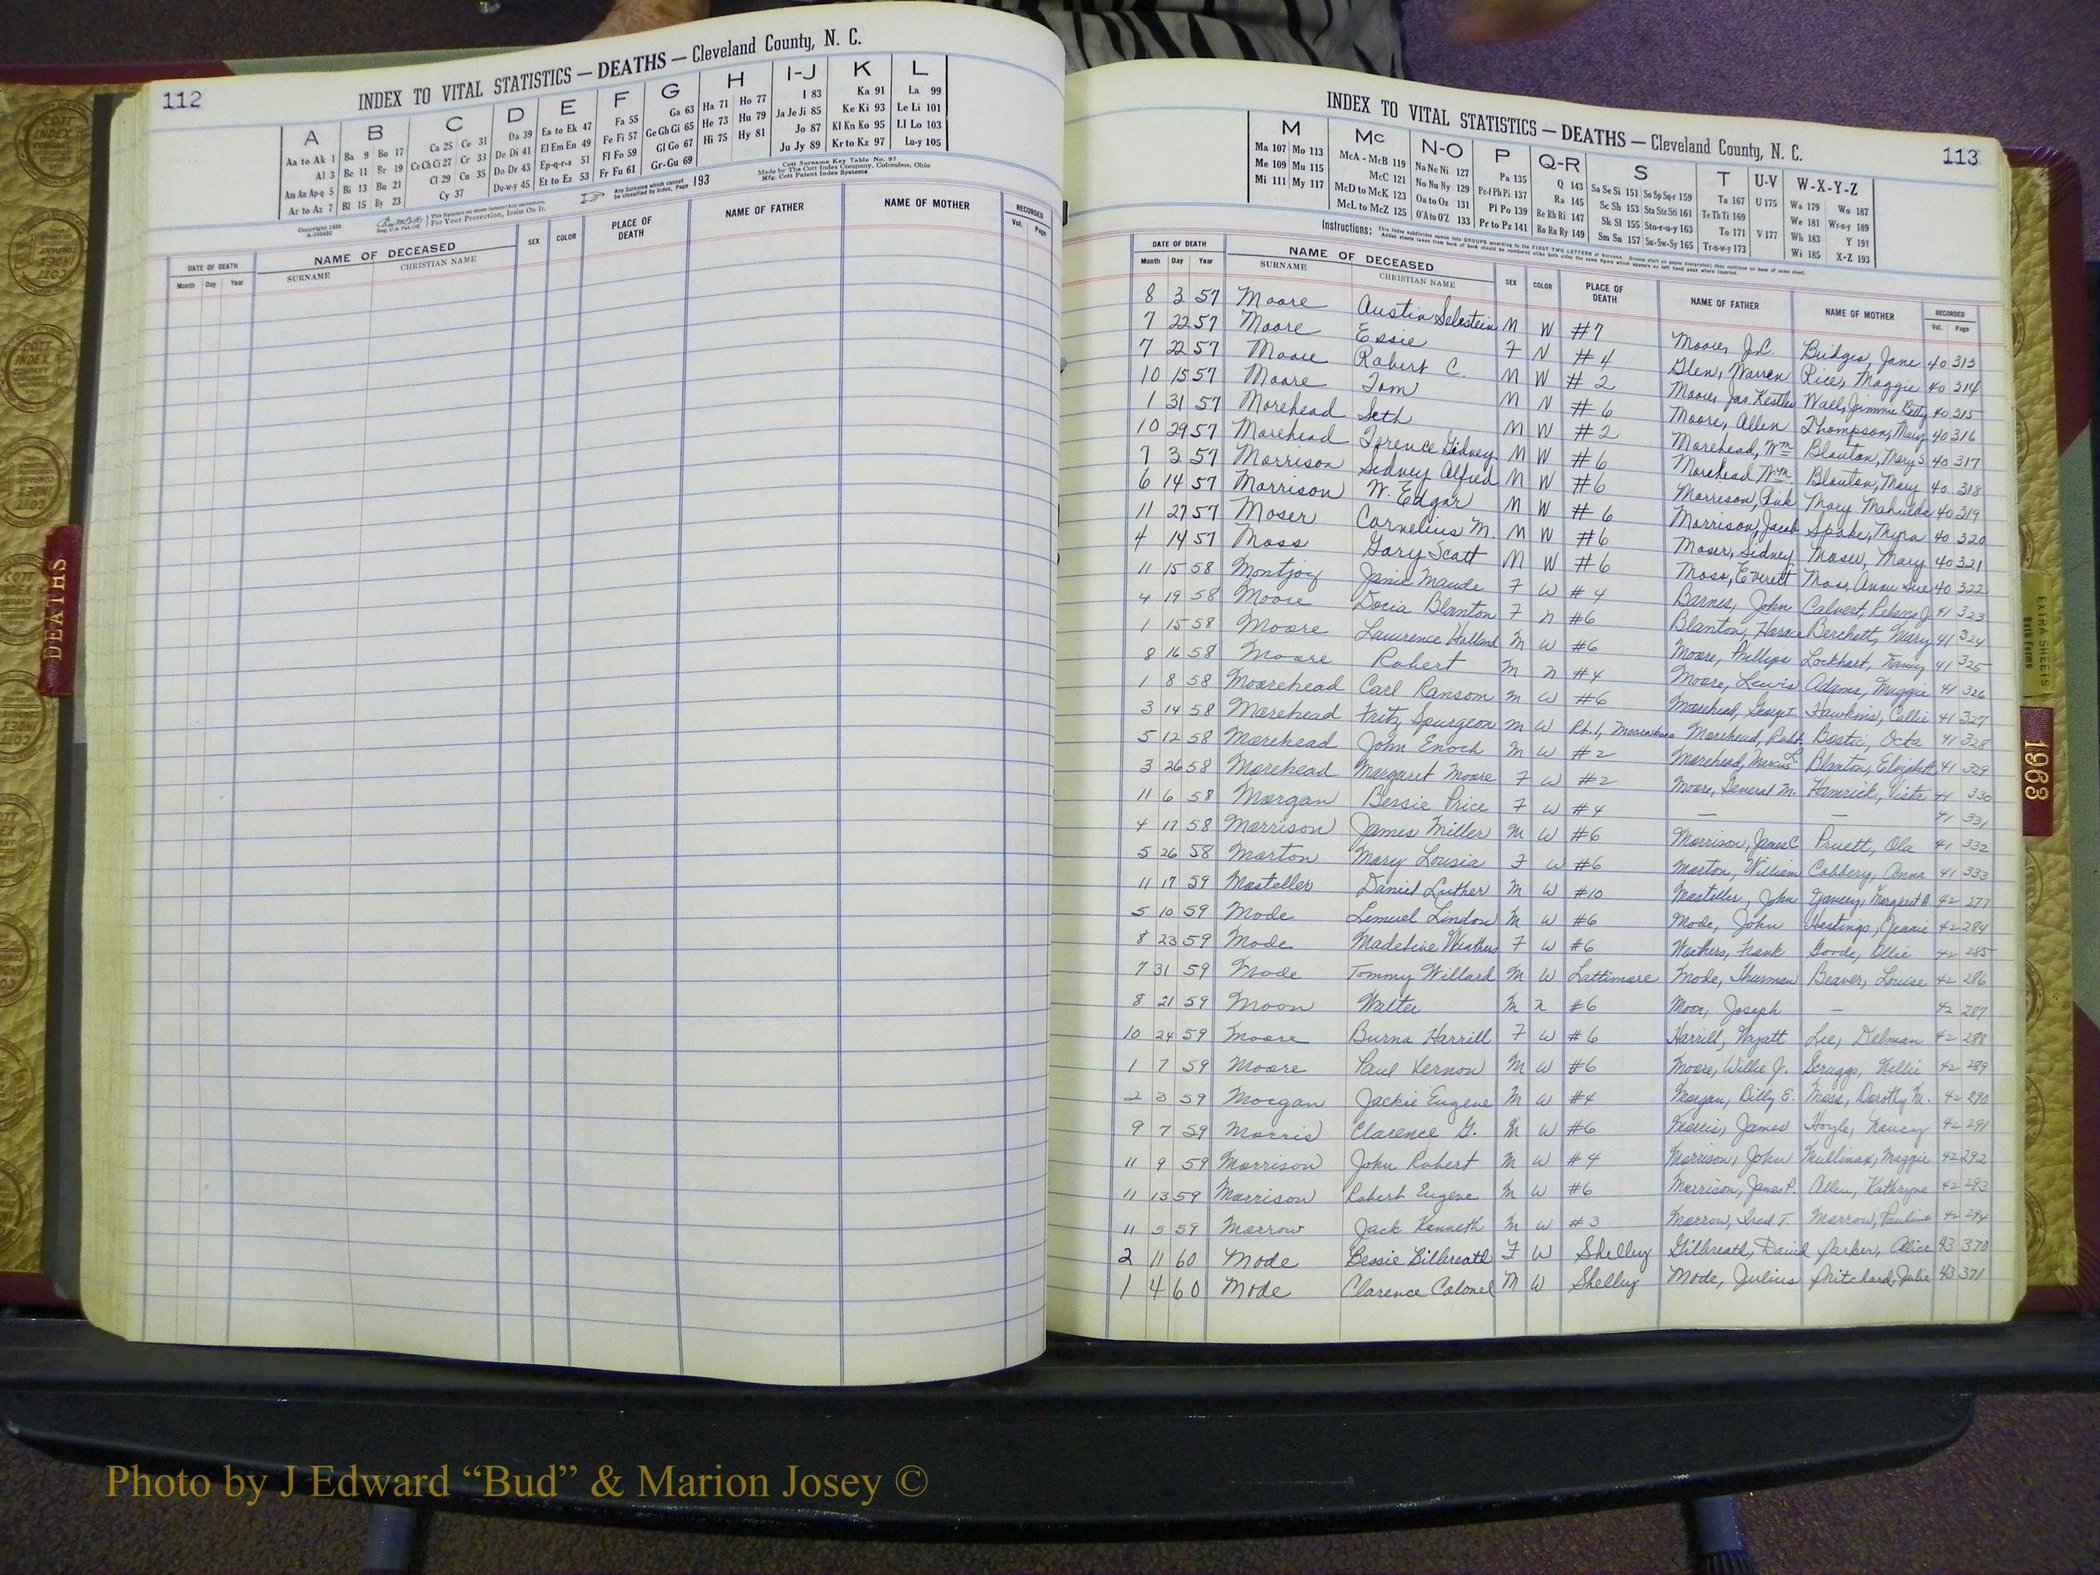 112
INDEX TO VITAL STATISTICS — DEATHS — Cleveland County, N. C.
A B C D E F G H I-J K L
Aa to Ak 1 Ba 9 Bo 17 Ca 25 Co 31 Da 39 Ea to Ek 47 Fa 55 Ga 63 Ha 71 Ho 77 I 83 Ka 91 La 99
Al 3 Be 11 Br 19 Ce Ch Ci 27 Cr 33 De Di 41 El Em En 49 Fe Fi 57 Ge Gh Gi 65 He 73 Hu 79 Ja Je Ji 85 Ke Ki 93 Le Li 101
Am An Ap-q 5 Bi 13 Bu 21 Cl 29 Cu 35 Do Dr 43 Ep-q-r-s 51 Fl Fo 59 Gl Go 67 Hi 75 Hy 81 Jo 87 Kl Kn Ko 95 Ll Lo 103
Ar to Az 7 Bl 15 By 23 Cy 37 Du-w-y 45 Et to Ez 53 Fr Fu 61 Gr-Gu 69 Ju Jy 89 Kr to Kz 97 Lu-y 105
Any Surname which cannot be classified by Index, Page 193
Cott Surname Key Table No. 97
Made by The Cott Index Company, Columbus, Ohio
Mfg. Cott Patent Index Systems
For Your Protection, Insist On It.
DATE OF DEATH NAME OF DECEASED SEX COLOR PLACE OF DEATH NAME OF FATHER NAME OF MOTHER RECORDED
Month Day Year SURNAME CHRISTIAN NAME Vol. Page
INDEX TO VITAL STATISTICS — DEATHS — Cleveland County, N. C.
113
M Mc N-O P Q-R S T U-V W-X-Y-Z
Ma 107 Mo 113 McA - McB 119 Na Ne Ni 127 Pa 135 Q 143 Sa Se Si 151 So Sp Sq-r 159 Ta 167 U 175 Wa 179 Wo 187
Me 109 Mu 115 McC 121 No Nu Ny 129 Pe-f Ph Pi 137 Ra 145 Sc Sh 153 Sta Ste Sti 161 Te Th Ti 169 We 181 Wr-u-y 189
Mi 111 My 117 McD to McK 123 Oa to Oz 131 Pl Po 139 Re Rh Ri 147 Sk Sl 155 Sto-r-u-y 163 To 171 V 177 Wh 183 Y 191
McL to McZ 125 O'A to O'Z 133 Pr to Pz 141 Ro Ru Ry 149 Sm Sn 157 Su-Sw-Sy 165 Tr-u-w-y 173 Wi 185 X-Z 193
DATE OF DEATH NAME OF DECEASED SEX COLOR PLACE OF DEATH NAME OF FATHER NAME OF MOTHER RECORDED
Month Day Year SURNAME CHRISTIAN NAME Vol. Page
8 3 57 Moore Austin Selestein M W #7 Moore, J.C. Bridges, Jane 40 313
7 22 57 Moore Essie F N #4 Glen, Warren Rice, Maggie 40 314
7 22 57 Moore Robert C. M W #2 Moore, Jas Kestler Wall, Jimmie Betty 40 315
10 15 57 Moore Tom M N #6 Moore, Allen Thompson, Mary 40 316
1 31 57 Morehead Seth M W #2 Morehead, Wm Blanton, Mary S 40 317
10 29 57 Morehead Torence Gidney M W #6 Morehead Wm. Blanton, Mary 40 318
7 3 57 Morrison Sidney Alfred M W #6 Morrison, Pink Mary Mahulda 40 319
6 14 57 Morrison W. Edgar M W #6 Morrison, Jacob Spake, Myra 40 320
11 27 57 Moser Cornelius M. M W #6 Moser, Sidney Moser, Mary 40 321
4 14 57 Moss Gary Scott M W #6 Moss, Everett Moss, Annie Sue 40 322
11 15 58 Montjoy Janie Maude F W #4 Barnes, John Calvert, Rebecca J 41 323
4 19 58 Moore Docia Blanton F N #6 Blanton, Horace Berchett, Mary 41 324
1 15 58 Moore Lawrence Holland M W #6 Moore, Phillips Lockhart, Nancy 41 325
8 16 58 Moore Robert M N #4 Moore, Lewis Adams, Maggie 41 326
1 8 58 Moorehead Carl Ransom M W #6 Moorehead, George T. Hawkins, Callie 41 327
3 14 58 Morehead Fritz Spurgeon M W Rt. 1, Mooresboro Morehead, Robt. Bostic, Octa 41 328
5 12 58 Morehead John Enoch M W #2 Morehead, Marcus L. Blanton, Elizabeth 41 329
3 26 58 Morehead Margaret Moore F W #2 Moore, General M. Hamrick, Vista 41 330
11 6 58 Morgan Bessie Price F W #4 — — 41 331
4 17 58 Morrison James Miller M W #6 Morrison, James C Pruett, Ola 41 332
5 26 58 Morton Mary Lousia F W #6 Morton, William Cobbery, Anna 41 333
11 17 59 Mosteller Daniel Luther M W #10 Mosteller, John Yancey, Margaret A. 42 277
5 10 59 Mode Lemuel Lindon M W #6 Mode, John Hastings, Jennie 42 284
8 23 59 Mode Madeline Weathers F W #6 Weathers, Frank Goode, Ollie 42 285
7 31 59 Mode Tommy Willard M W Lattimore Mode, Thurman Beaver, Louise 42 286
8 21 59 Moon Walter M N #6 Moon, Joseph — 42 287
10 24 59 Moore Burna Harrill F W #6 Harrill, Wyatt Lee, Delman 42 288
1 7 59 Moore Paul Vernon M W #6 Moore, Willie J. Scruggs, Nellie 42 289
2 3 59 Morgan Jackie Eugene M W #4 Morgan, Billy E. Moss, Dorothy M. 42 290
9 7 59 Morris Clarence G. M W #6 Morris, James Hoyle, Nancy 42 291
11 9 59 Morrison John Robert M W #4 Morrison, John Mullinax, Maggie 42 292
11 13 59 Morrison Robert Eugene M W #6 Morrison, James P. Allen, Kathryne 42 293
11 5 59 Morrow Jack Kenneth M W #3 Morrow, Fred T. Morrow, Pauline 42 294
2 11 60 Mode Bessie Gilbreath F W Shelby Gilbreath, David Parker, Alice 43 370
1 4 60 Mode Clarence Colonel M W Shelby Mode, Julius Pritchard, Julie 43 371
DEATHS
EXTRA SHEETS
Both Forms
1963
Photo by J Edward “Bud” & Marion Josey ©